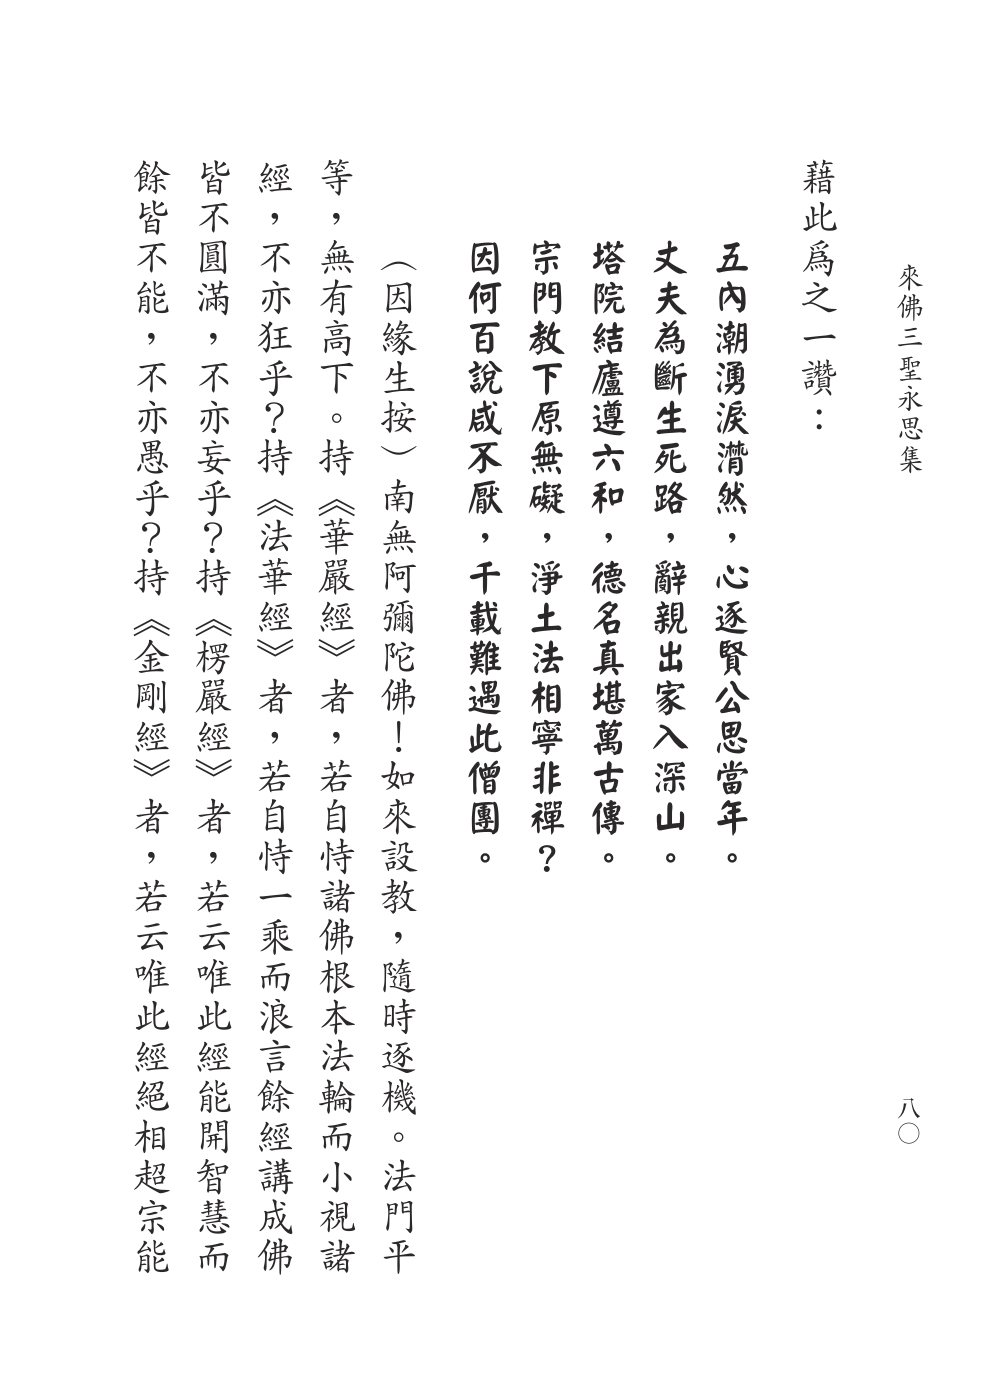 來佛三聖永思集
八〇
藉此爲之一讚：
五內潮湧淚潸然，心逐賢公思當年。
丈夫為斷生死路，辭親出家入深山。
塔院結廬遵六和，德名真堪萬古傳。
宗門教下原無礙，淨土法相寧非禪？
因何百說咸不厭，千載難遇此僧團。
（因緣生按）南無阿彌陀佛！如來設教，隨時逐機。法門平
等，無有高下。持《華嚴經》者，若自恃諸佛根本法輪而小視諸
經，不亦狂乎？持《法華經》者，若自恃一乘而浪言餘經講成佛
皆不圓滿，不亦妄乎？持《楞嚴經》者，若云唯此經能開智慧而
餘皆不能，不亦愚乎？持《金剛經》者，若云唯此經絕相超宗能